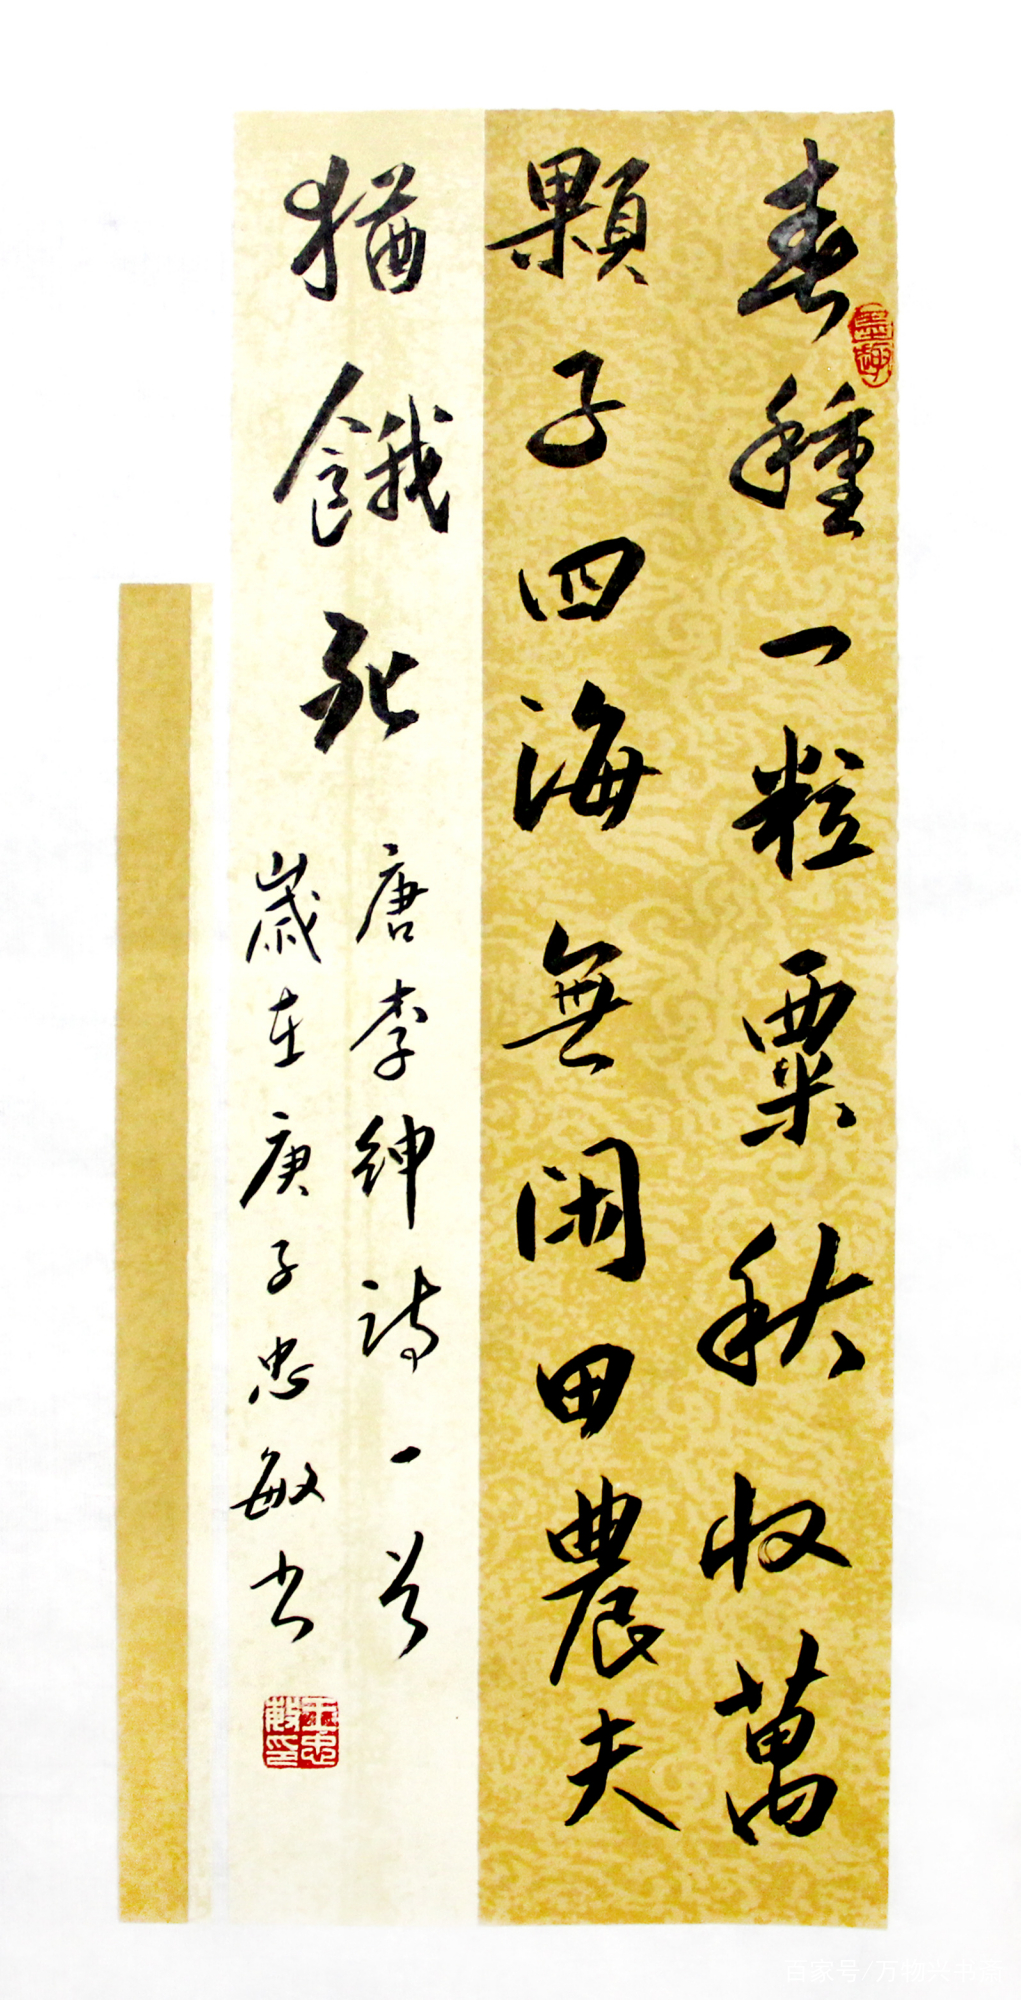 春種一粒粟秋收萬
顆子四海無閑田農夫
猶餓死
唐李紳詩一首
歲在庚子忠敏书
墨趣
王忠敏印
百家号/万物兴书画